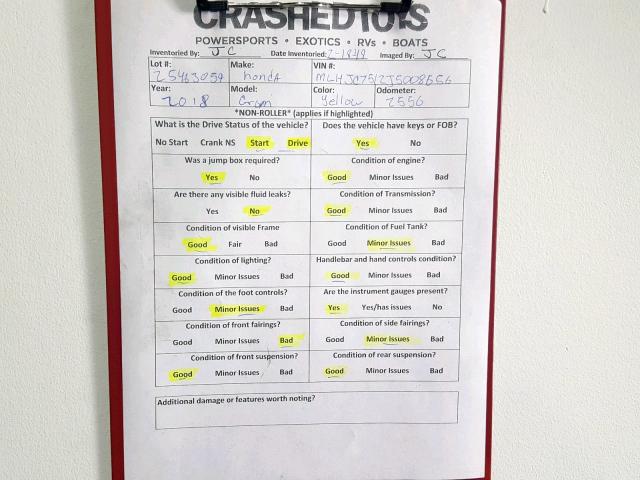 CRASHEDTOYS
POWERSPORTS • EXOTICS • RVs • BOATS
Inventoried By: JC Date Inventoried: Imaged By: JC
Lot #: Make: VIN #:
25463059 Honda
Year: Model: Color: Odometer:
2018 Grom Yellow 2556
*NON-ROLLER* (applies if highlighted)
What is the Drive Status of the vehicle? Does the vehicle have keys or FOB?
No Start Crank NS Start Drive Yes No
Was a jump box required? Condition of engine?
Yes No Good Minor Issues Bad
Are there any visible fluid leaks? Condition of Transmission?
Yes No Good Minor Issues Bad
Condition of visible Frame Condition of Fuel Tank?
Good Fair Bad Good Minor Issues Bad
Condition of lighting? Handlebar and hand controls condition?
Good Minor Issues Bad Good Minor Issues Bad
Condition of the foot controls? Are the instrument gauges present?
Good Minor Issues Bad Yes Yes/has issues No
Condition of front fairings? Condition of side fairings?
Good Minor Issues Bad Good Minor Issues Bad
Condition of front suspension? Condition of rear suspension?
Good Minor Issues Bad Good Minor Issues Bad
Additional damage or features worth noting?